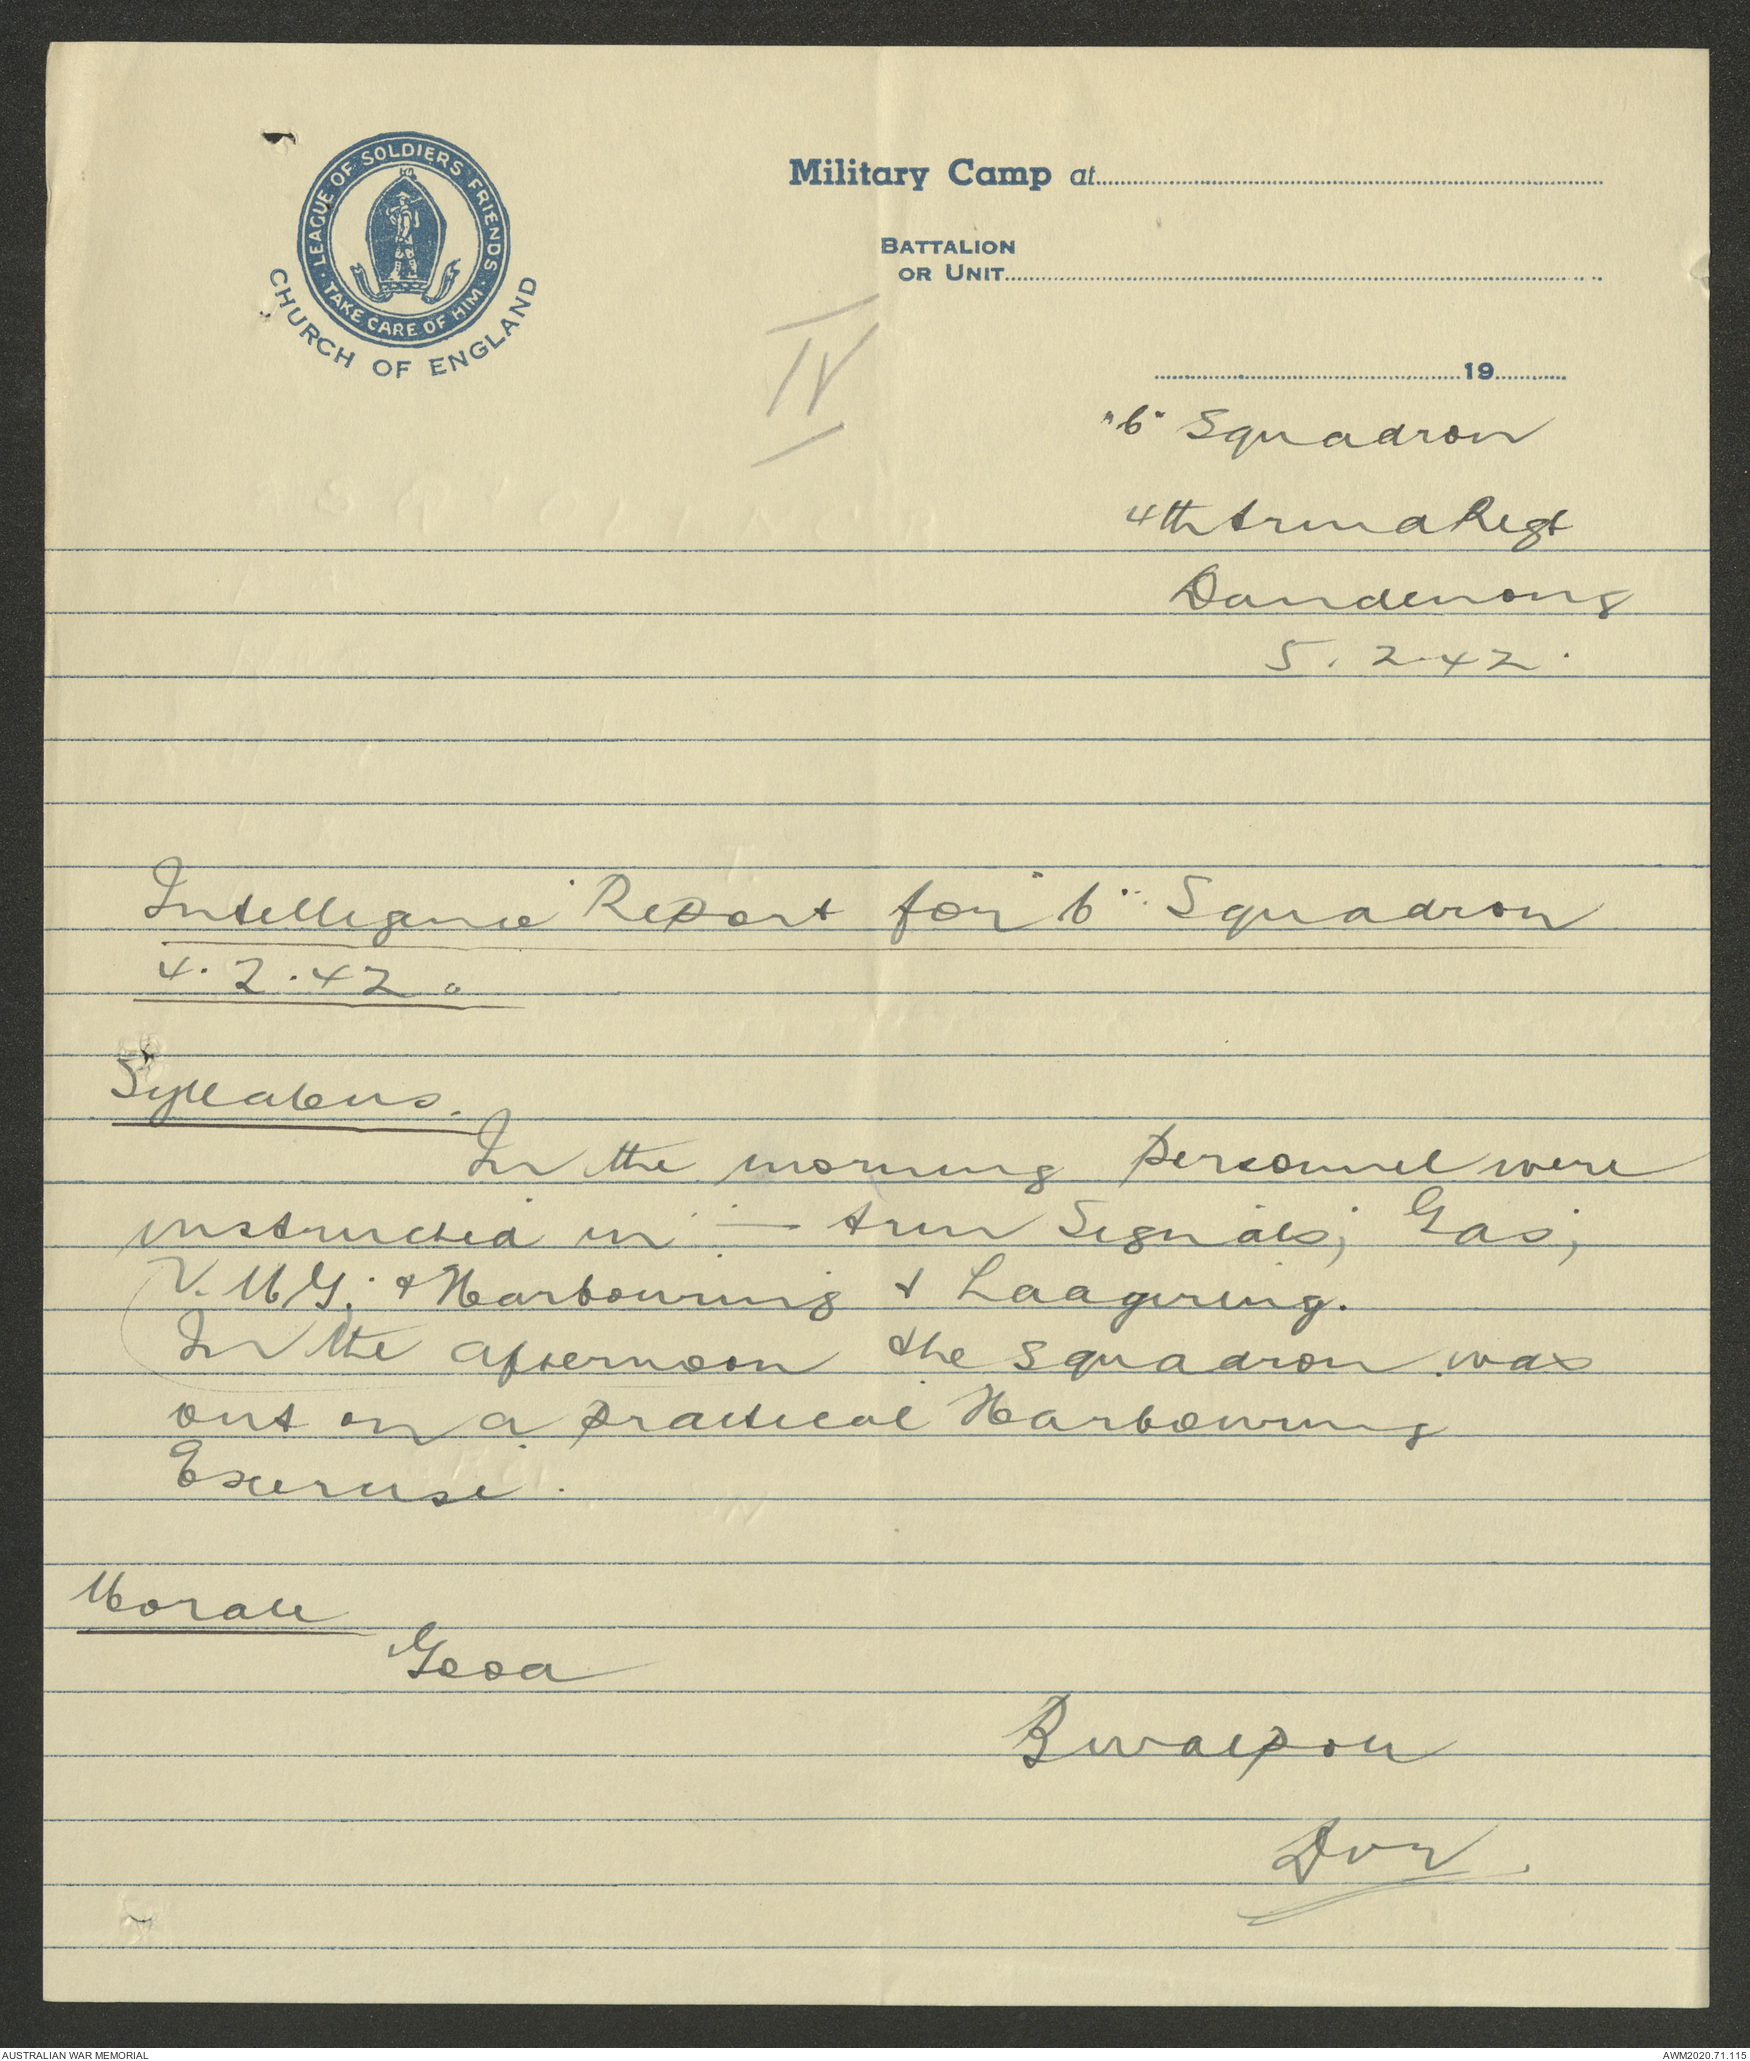 LEAGUE OF SOLDIERS FRIENDS
TAKE CARE OF HIM
CHURCH OF ENGLAND
Military Camp at
BATTALION
OR UNIT
19
IV
"b" Squadron
4th Armd Regt
Dandenong
5.2.42.
Intelligence Report for "b" Squadron
4.2.42.
Syllabus.
In the morning personnel were
instructed in :— Arm Signals; Gas;
V.M.G; & Harbouring & Laagering.
In the afternoon the squadron was
out on a practical Harbouring
Exercise.
Morale
Good
AUSTRALIAN WAR MEMORIAL
AWM2020.71.115